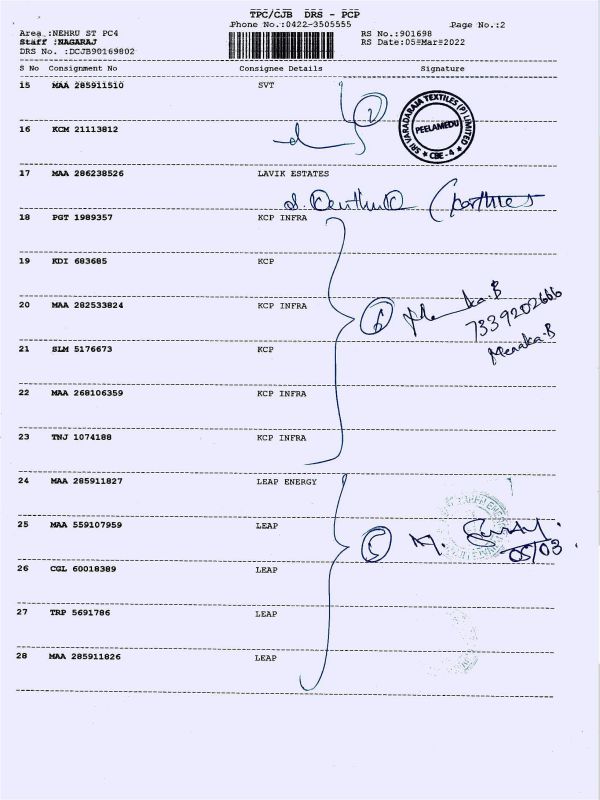 TPC/CJB DRS - PCP
Phone No.:0422-3505555
Page No.:2
Area :NEHRU ST PC4
RS No.:901698
Staff :NAGARAJ
RS Date:05-Mar-2022
DRS No. :DCJB90169802
S No Consignment No Consignee Details Signature
15 MAA 285911510 SVT
2
SRI VARADARAJA TEXTILES (P) LIMITED
PEELAMEDU
★ CBE - 4 ★
16 KCM 21113812
17 MAA 286238526 LAVIK ESTATES
18 PGT 1989357 KCP INFRA
19 KDI 683685 KCP
20 MAA 282533824 KCP INFRA
6 Menaka.B
7339202666
21 SLM 5176673 KCP
Menaka.B
22 MAA 268106359 KCP INFRA
23 TNJ 1074188 KCP INFRA
24 MAA 285911827 LEAP ENERGY
25 MAA 559107959 LEAP
5 M.
05/03
26 CGL 60018389 LEAP
27 TRP 5691786 LEAP
28 MAA 285911826 LEAP